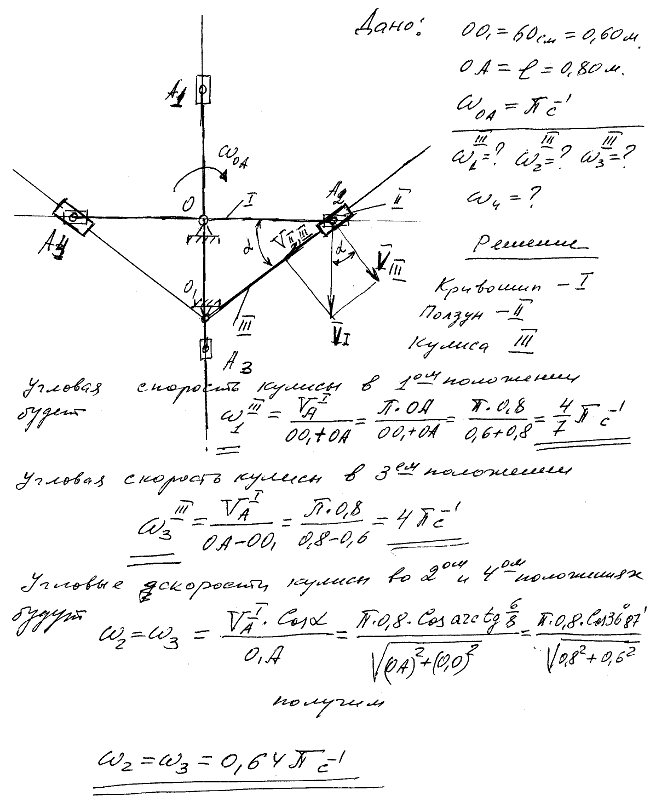 Дано: OO₁ = 60см = 0,60м.
OA = ℓ = 0,80м.
ω_OA = π c⁻¹
ω₁ᴵᴵᴵ = ? ω₂ᴵᴵᴵ = ? ω₃ᴵᴵᴵ = ?
ω₄ = ?
Решение
Кривошип – I
Ползун – II
Кулиса III
A₁
ω_OA
O
I
A₂
II
A₄
α
V_II,III
α
V_III
O₁
III
V_I
A₃
Угловая скорость кулисы в 1ᵒᵐ положении
будет ω₁ᴵᴵᴵ = V_Aᴵ / (OO₁+OA) = π·OA / (OO₁+OA) = π·0,8 / (0,6+0,8) = 4/7 π c⁻¹
Угловая скорость кулисы в 3ᵉᵐ положении
ω₃ᴵᴵᴵ = V_Aᴵ / (OA−OO₁) = π·0,8 / (0,8−0,6) = 4π c⁻¹
Угловые скорости кулисы во 2ᵒᵐ и 4ᵒᵐ положениях
будут ω₂ = ω₃ = V_Aᴵ · Cosα / O₁A = π·0,8·Cos arctg 6/8 / √((OA)²+(O₁O)²) = π·0,8·Cos36°87' / √(0,8²+0,6²)
получим
ω₂ = ω₃ = 0,64π c⁻¹